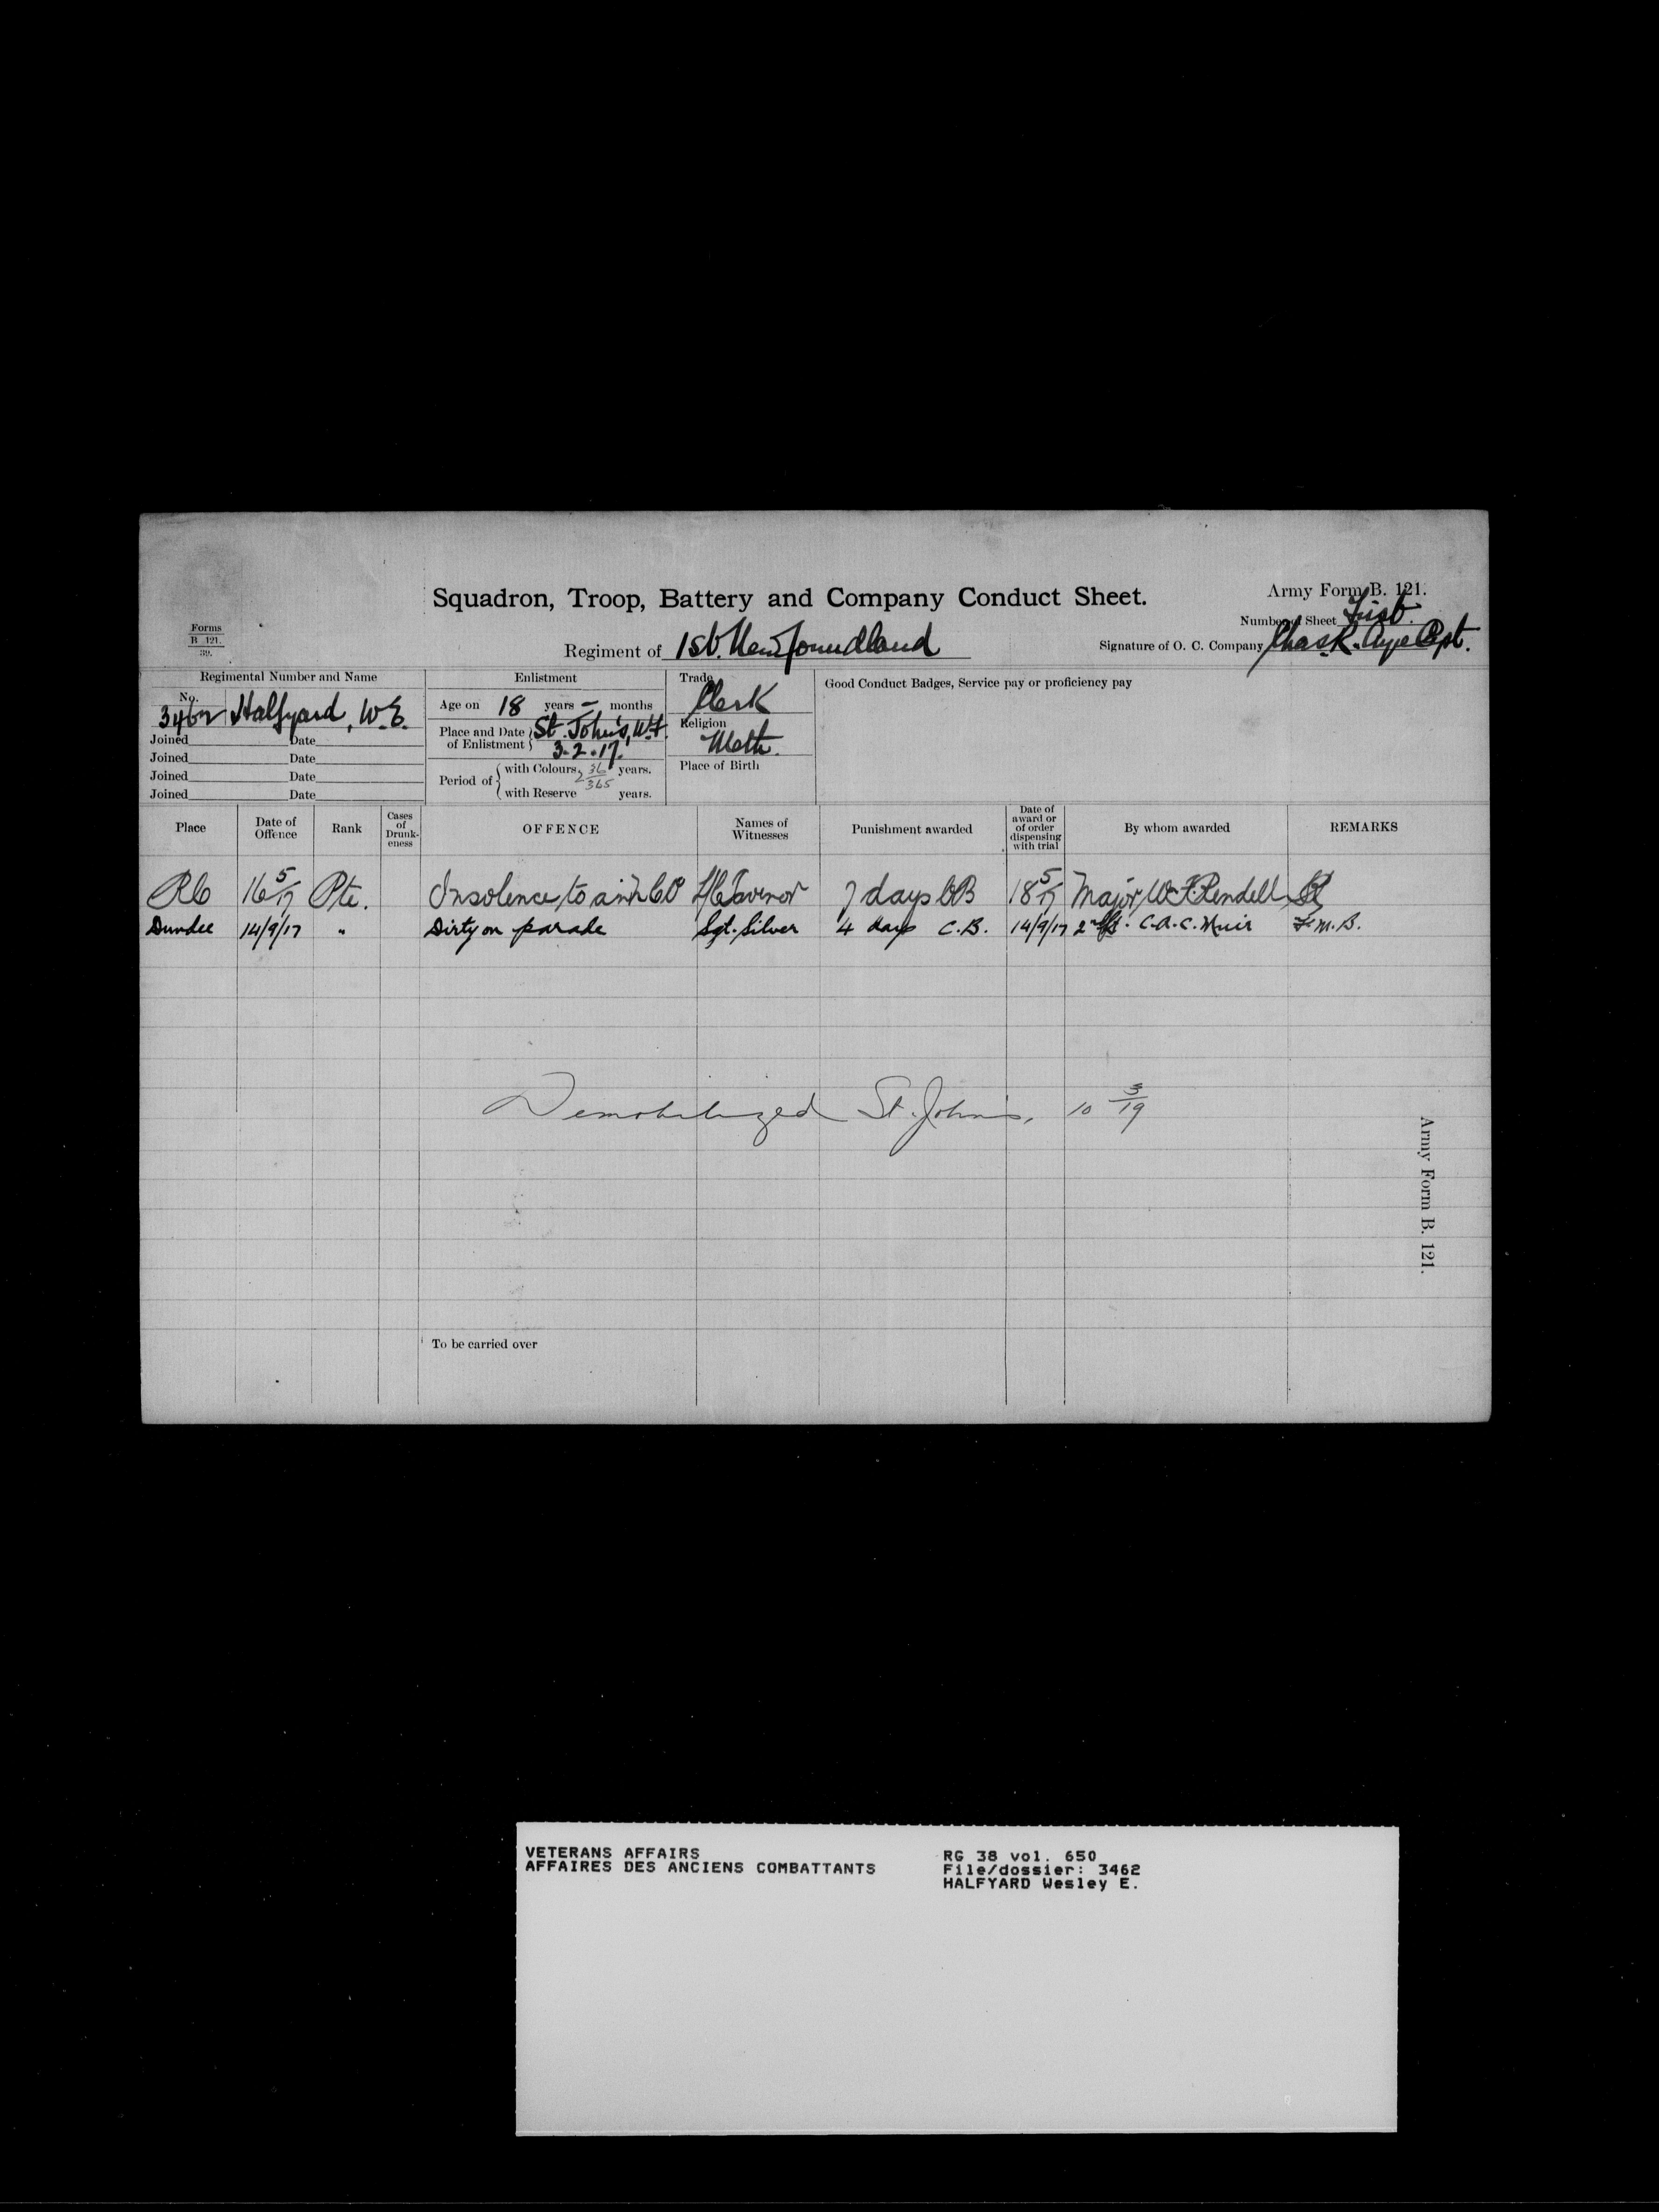 Squadron, Troop, Battery and Company Conduct Sheet.
Army Form B. 121.
Forms
B 121.
39.
Number of Sheet First
Regiment of 1st. Newfoundland
Signature of O. C. Company Chas. R. Ayre Capt.
Regimental Number and Name
No.
3462 Halfyard, W.E.
Joined Date
Joined Date
Joined Date
Joined Date
Enlistment
Age on 18 years – months
Place and Date of Enlistment St. John's, N.F.
3-2-17.
Period of with Colours 2 36/365 years.
with Reserve years.
Trade
Clerk
Religion
Meth.
Place of Birth
Good Conduct Badges, Service pay or proficiency pay
Place Date of Offence Rank Cases of Drunk-eness OFFENCE Names of Witnesses Punishment awarded Date of award or of order dispensing with trial By whom awarded REMARKS
16 5/17 Pte. Insolence to NCO 7 days CB 18 5/17 Major W. F. Rendell
Dundee 14/9/17 " Dirty on parade Sgt. Silver 4 days C.B. 14/9/17 2nd Lt. C.A.C. Muir F.M.B.
Demobilized St. John's, 10 3/19
Army Form B. 121.
To be carried over
VETERANS AFFAIRS RG 38 vol. 650
AFFAIRES DES ANCIENS COMBATTANTS File/dossier: 3462
HALFYARD Wesley E.